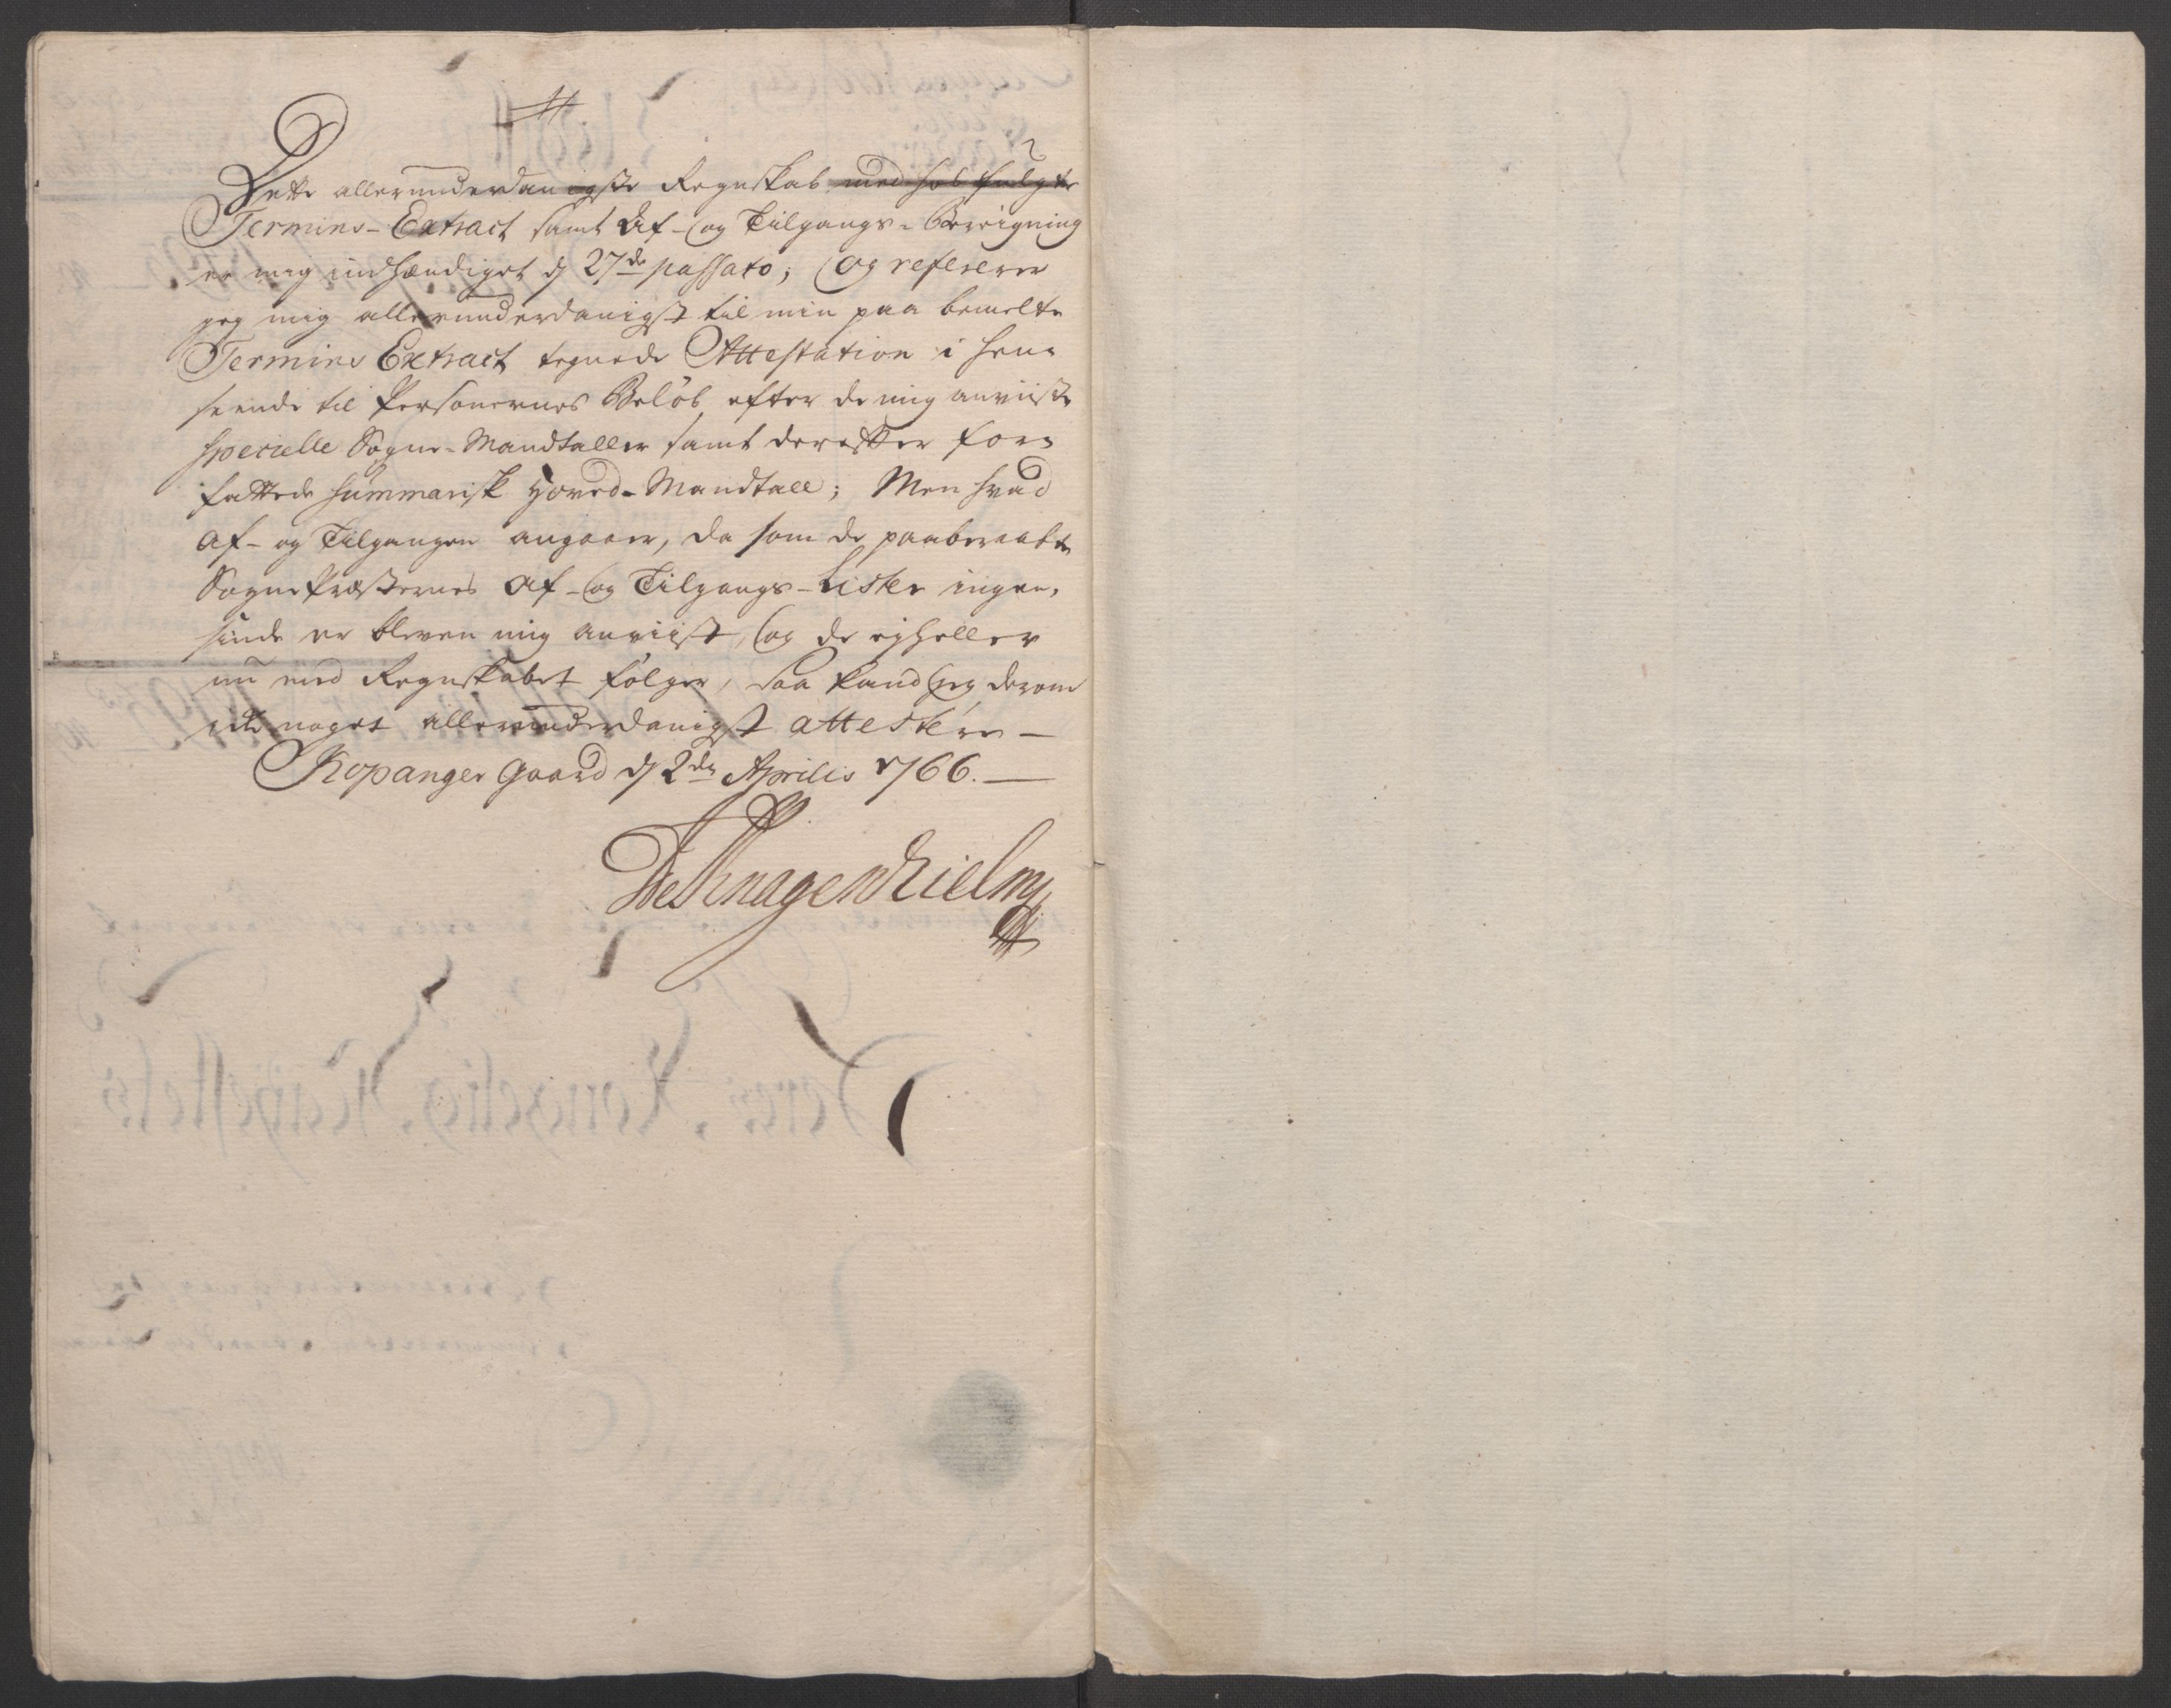 Dette allerunderdanigste Regnskab med hos fulgte
Termins-Extract samt Af- og Tilgangs-Beregning
er mig indhændiget d 27de passato; og referer
jeg mig allerunderdanigst til min paa bemelte
Termins Extract tegnede Attestation i hen-
seende til Personernes Beløb efter de mig anviiste
specielle Sogne-Mandtaller samt derefter for-
fattede summarisk Hoved-Mandtall; Men hvad
Af- og Tilgangen angaaer, da som de paaberaabte
SognePræsternes Af- og Tilgangs-Lister ingen-
sinde er bleven mig anviist, og de ejheller
nu med Regnskabet følger, saa kand jeg derom
icke noget allerunderdanigst attestere —
Kopanger Gaard d 2den Aprilis 1766. —